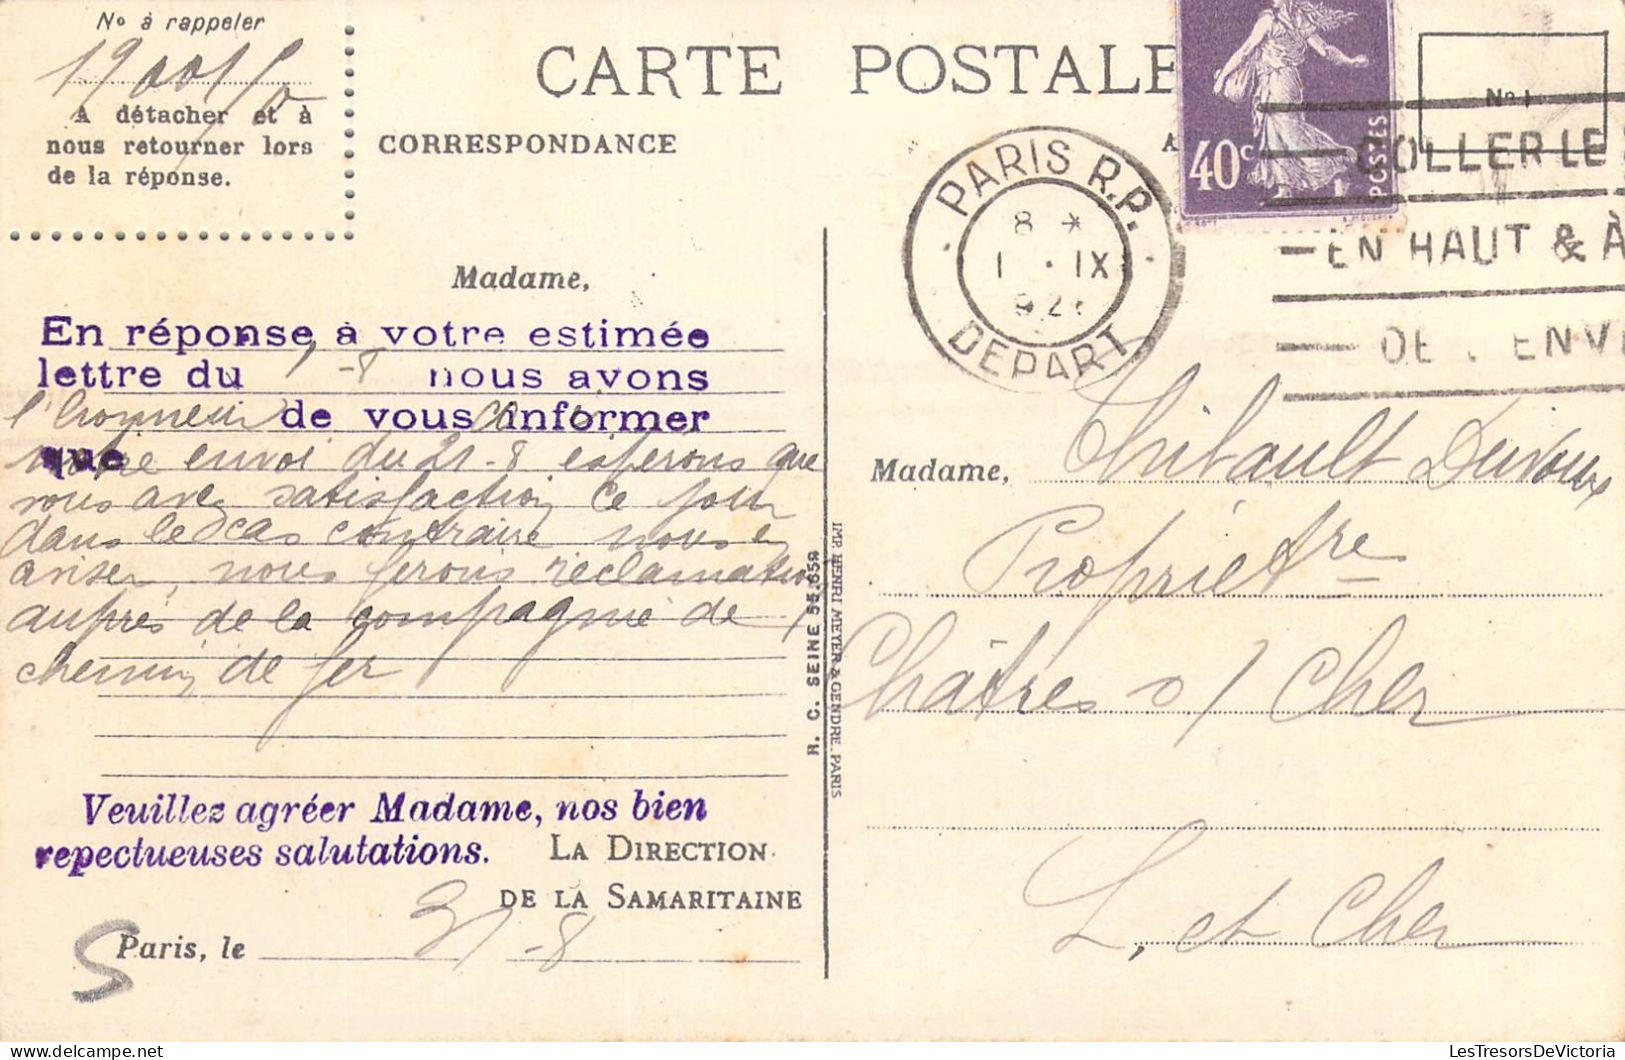 No à rappeler
A détacher et à
nous retourner lors
de la réponse.
CARTE POSTALE
CORRESPONDANCE
No 1
40c
POSTES
PARIS R.P.
8 *
1 · IX
DEPART
COLLER LE
EN HAUT & À
ENV
Madame,
En réponse à votre estimée
lettre du -8 nous avons
l'honneur de vous informer
que
envoi du 21-8 espérons que
vous avez satisfaction ce jour
dans le cas contraire nous en
aviser, nous ferons réclamation
auprès de la compagnie de
chemin de fer
Veuillez agréer Madame, nos bien
repectueuses salutations.
LA DIRECTION
DE LA SAMARITAINE
Paris, le 31-8
S
R. C. SEINE 55.658
IMP. HENRI MEYER & GENDRE. PARIS
Madame, Thibault
Propriétre
Châtres s/ Cher
L. et Cher
www.LesTresorsDeVictoria.com